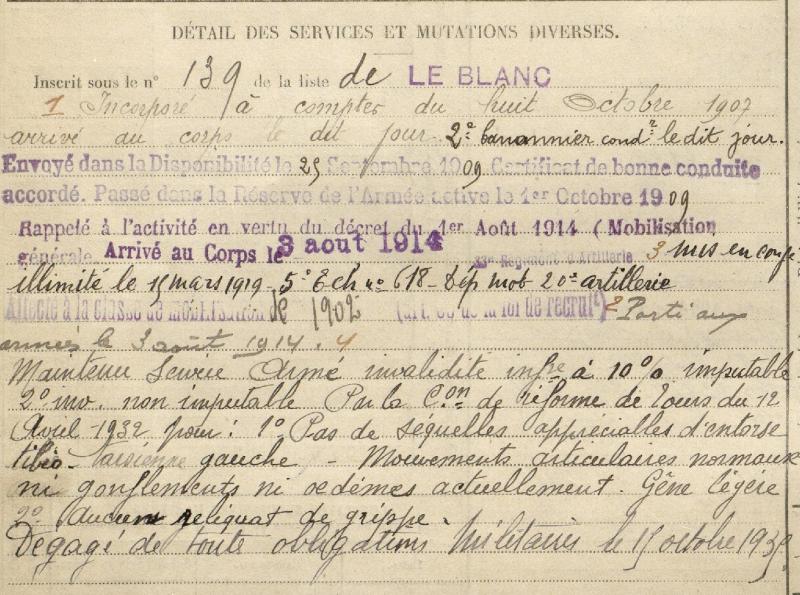 DÉTAIL DES SERVICES ET MUTATIONS DIVERSES.
Inscrit sous le n° 139 de la liste de LE BLANC
1 Incorporé à compter du huit Octobre 1907
arrivé au corps le dit jour. 2e canonnier condr le dit jour.
Envoyé dans la Disponibilité le 25 Septembre 1909 Certificat de bonne conduite
accordé. Passé dans la Réserve de l'Armée active le 1er Octobre 1909
Rappelé à l'activité en vertu du décret du 1er Août 1914 (Mobilisation
générale. Arrivé au Corps le 3 aout 1914 Régiment d'Artillerie 3 mis en congé
illimité le 15 mars 1919 - 5e Ech no 618 - Dép mob 20e artillerie
Affecté à la classe de mobilisation de 1902 (art. de la loi de recrutt) 2 Parti aux
armées le 3 août 1914. 4
Maintenu Service Armé invalidité infre à 10% imputable
2° inv. non imputable Par la Con de réforme de Tours du 12
Avril 1932 pour : 1° Pas de séquelles appréciables d'entorse
tibio-tarsienne gauche - Mouvements articulaires normaux
ni gonflements ni oedèmes actuellement. Gêne légère
2° Aucun reliquat de grippe.
Dégagé de toute obligations Militaires le 15 octobre 1935